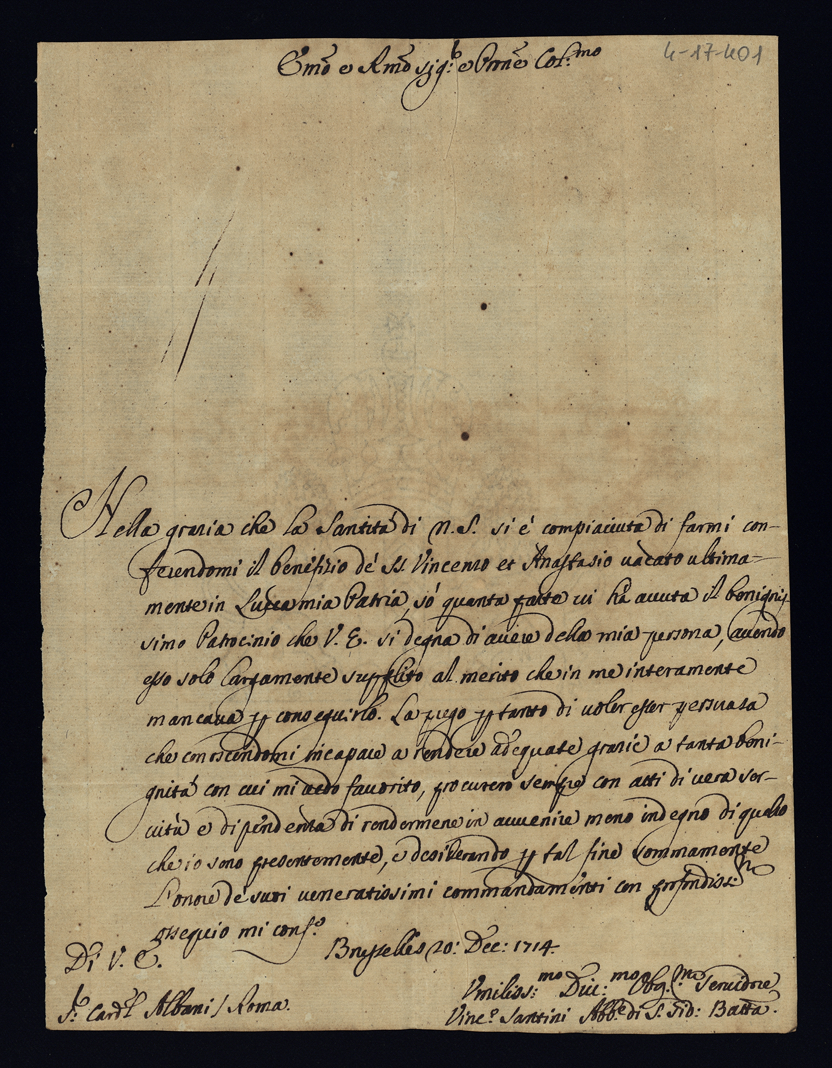 Emo e Rmo sig.r e Prone Col.mo
4-17-401
Nella grazia che la Santità di N. S. si è compiaciuta di farmi con-
ferendomi il benefizio de' SS. Vincenzo et Anastasio vacato ultima-
mente in Lucca mia Patria, sò quanta parte vi hà avuta il benignis-
simo Patrocinio che V. E. si degna di avere della mia persona, avendo
esso solo largamente supplito al merito che in me interamente
mancava p conseguirlo. La priego p tanto di voler esser persuasa
che conoscendomi incapace a rendere adequate grazie a tanta beni-
gnità con cui mi vedo favorito, procurerò sempre con atti di vera ser-
vitù e dipendenza di rendermene in avvenire meno indegno di quello
che io sono presentemente, e desiderando p tal fine sommamente
L'onore de suoi veneratissimi commandamenti con profondiss.mo
ossequio mi conf.o
Di V. E. Brusselles 20: Dec: 1714.
S.r Card.l Albani / Roma.
Umiliss:mo Div:mo Obg.mo Servidore
Vinc.o Santini Abb.e di S. Gio: Batta.